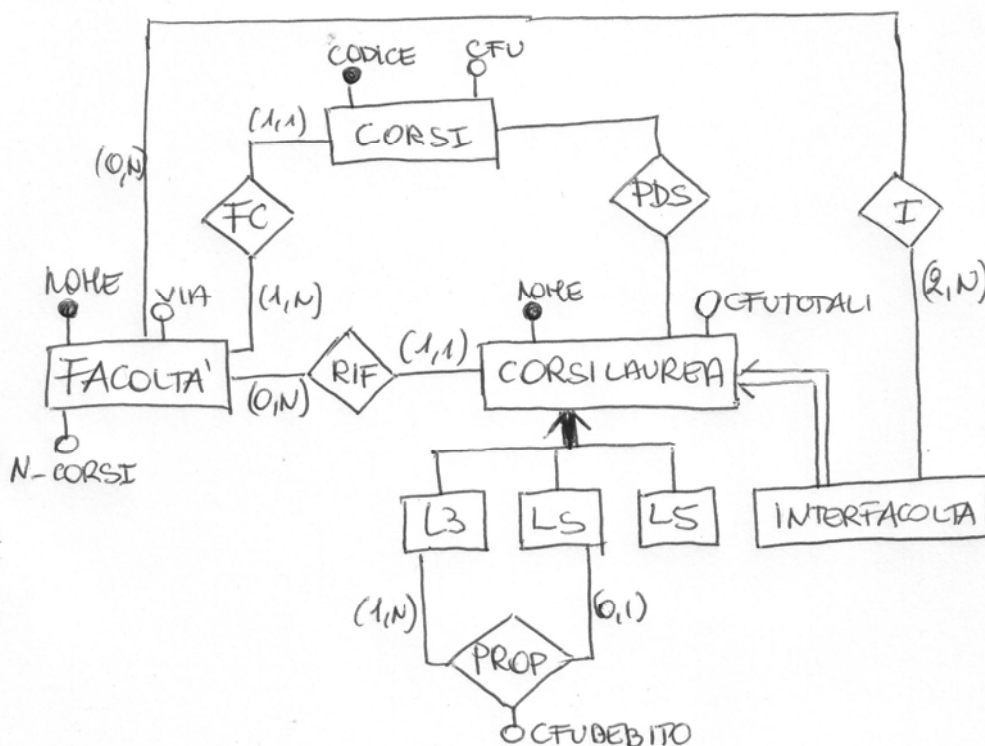 CODICE
CFU
(1,1)
CORSI
(0,N)
FC
PDS
I
NOME
VIA
(1,N)
NOME
CFUTOTALI
(2,N)
FACOLTA'
(0,N)
RIF
(1,1)
CORSILAUREA
N-CORSI
L3
LS
L5
INTERFACOLTA
(1,N)
(0,1)
PROP
CFUDEBITO